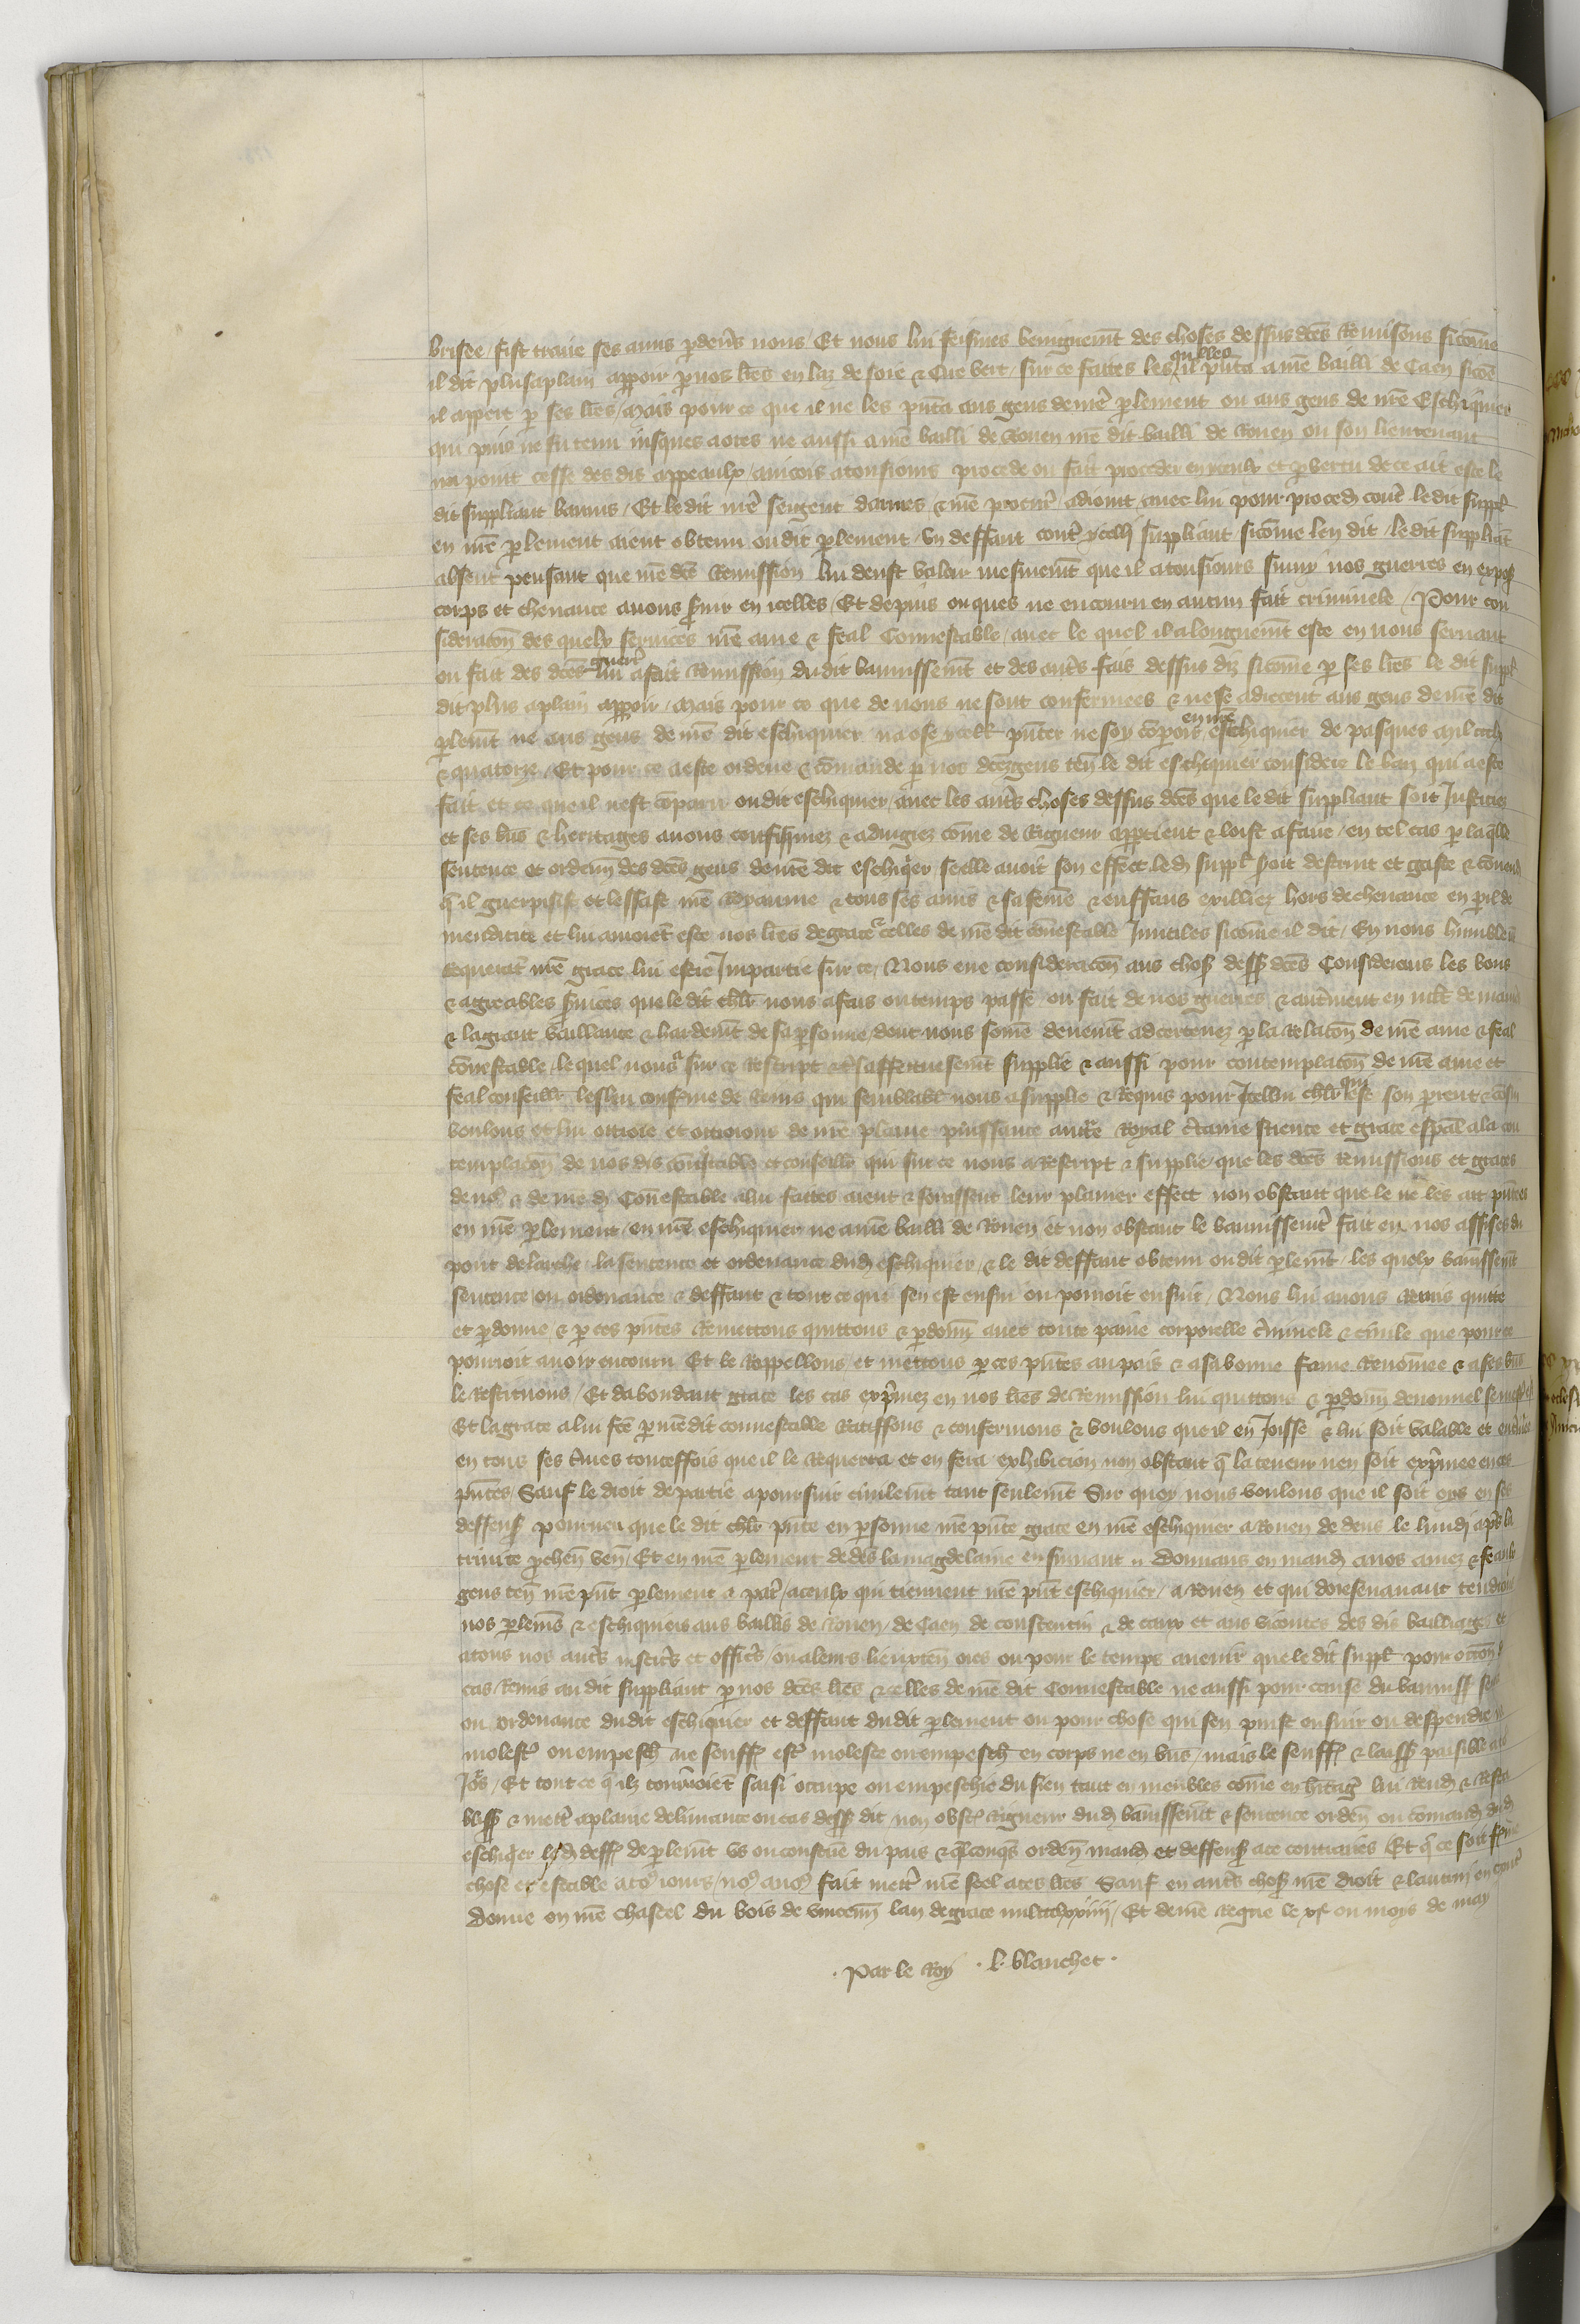 brisee / fist traire ses amis p deũs nous / Et nous lui feismes benignemt̃ des choses dessus dc̃es Remissions sicõme
il dit plusaplain apparoir p nos lr̃es en laz de soie & Cire vert / sur ce faittes les quelles il pñta a nr̃e bailli de Caen sicõe
il appert p ses lr̃es / Mais pour ce que il ne les pñta aus gens de nr̃e plement ou aus gens de nr̃e Eschiquier
qui puis ne fu tenu iusques aores ne aussi a nr̃e bailli de Rouen nr̃e dit bailli de Rouen ou son lieutenant
na point cesse des dis appeaulx / aincois a tousiours procede ou fait proceder en yceulx et p vertu de ce ait este le
dit suppliant bannis / Et le dit nr̃e sergent darmes & nr̃e procur̃ adioint auec lui pour proced̃ contr̃ le dit suppl̃
en nr̃e plement aient obtenu ou dit plement / vn deffaut contr̃ ycell̃ suppliant sicõme len dit / le dit suppliãt
absent pensant que nr̃e dc̃e Remission lui deust valoir mesmemt̃ que il a tousiours suiuy nos guerres en expos̃
corps et cheuance auons s̃uir en icelles / Et depuis onques ne encouru en aucun fait criminele / Pour con
sideracõn des quelx seruices nr̃e ame & feal Connestable / auec le quel il a longuemt̃ este en nous seruant
ou fait des dc̃es guerr̃ lui a fait Remission du dit bannissemt̃ et des autr̃s fais dessus diz sicõme p ses lr̃es le dit suppl̃
dit plus aplain apparoir / Mais pour ce que de nous ne sont confermees & ne se adrecent aus gens de nr̃e dit
plemt̃ ne aus gens de nr̃e dit eschiquier na ose ycell̃ pñter ne soy cõparoir en nr̃e eschiquier de pasques mil ccclx
& quatorze / Et pour ce a este ordene & cõmande p nos dc̃es gens teñ le dit eschiquier considere le ban qui a este
fait et ce que il nest cõparu ou dit eschiquier / auec les autr̃s choses dessus dc̃es que le dit suppliant soit Justiciez
et ses bñs & heritages auons confisquiez & adiugiez cõme de Rigueur appartient & loist a faire / en tel cas p la qll̃e
sentence et ordeñ des dc̃es gens de nr̃e dit eschiqer selle auoit son effect led̃ suppl̃ seroit destruit et gaste & conuend̃
q̃ il guerpisist et lessast nr̃e Royaume & tous ses amis & sa femẽ & enffans exilliez hors de cheuance en peril de
mendicite et lui auroiẽt este nos lr̃es de grace & celles de nr̃e dit cõnestable Inutiles sicõme il dit / En nous humblemt̃
Requerãt nr̃e grace lui estre Impartie sur ce / Nous eue consideracõn aus chos̃ dess̃ dc̃es Considerans les bons
& agreables s̃uices que le dit chlr̃ nous a fais ou temps passe / ou fait de nos guerres & autr̃ment en mlt̃ de manier̃
& la grant vaillance & hardemt̃ de sa psonne / dont nous som̃e deuemt̃ acertenez p la Relacõn de nr̃e ame & feal
cõnestable / le quel nous a sur ce Rescript & t̃s affectueusemt̃ supplie & aussi pour contemplacõn de nr̃e ame et
feal conseiller leslieu confreme de Reins qui semblabl̃ nous a supplie & Requis pour Icellui chlr̃ qui est son parent & cõsin
voulons et lui ottroie et ottroions de nr̃e plaine puissance autr̃e Royal c̃taine science et grace esp̃al ala con
templacõn de nos dis connestable et conseillr̃ qui sur ce nous a Rescript & supplie que les dc̃es Remissions et graces
de no & de nr̃e d̃ Connestable alui faites aient & sortissent leur planier effect non obstant que le ne les ait pñtees
en nr̃e plement / en nr̃e eschiquier ne a nr̃e bailli de Rouen et non obstant le bannissemt̃ fait en nos assises du
pont delarche / la sentence et ordenance dud̃ eschiquier / & le dit deffaut obtenu ou dit plemt̃ / les quelx bannissemt̃
sentence ou ordenance & deffaut & tout ce qui sen est ensui ou pouroit ensuir / Nous lui auons Remis quitte
et pdonne & p ces pñtes Remettons quittons & pdonñ auec toute paine corporelle c̃minele & ciuile que pour ce
pourroit auoir encouru Et le Rappellons et mettons p ces pñtes au pais & a sa bonne fame Renõmee & a ses bñs
le Restituons / Et dabondant grace les cas exp̃mez en nos lr̃es de Remission lui quittons & pdonñ denouuel se mestr̃
Et la grace a lui fc̃e p nr̃e dit connestable Ratiffions & confermons & voulons que il eñ Joisse & lui soit valable et ent̃ine
en tous ses t̃mes touteffois que il le Requerra et en fera exhibicion non obstant q̃ la teneur nen soit exp̃mee en ces
pñtes / Sauf le droit de partie a poursuir ciuilemt̃ tant seulemt̃ Sur quoy nous voulons que il soit oys en ses
deffens̃ pourueu que le dit chlr̃ pñte en psonne nr̃e pñte grace en nr̃e eschiquier a Rouen de dens le lundi apr̃s la
trinite p̃cheñ veñ / Et en nr̃e plement dedẽs la magdelaine en suiuant si donnans en mand̃ anos amez & feaulx
gens teñ nr̃e pñt plement a par̃ / aceulx qui tiennent nr̃e pñt eschiquier / a Rouen et qui doresenauant tendront
nos plemẽs & eschiquiers aus baillis de Rouen / de Caen de constentin & de caux et aus vicontes des dis bailliages et
atous nos autr̃s iusticr̃s et officr̃s / ou aleurs lieuxteñ ores ou pour le temps auenir que le dit suppl̃ pour occoñ
cas Remis au dit suppliant p nos dc̃es lr̃es & celles de nr̃e dit Connestable ne aussi pour cause du banniss̃ sent̃
ou ordenance dudit eschiquier et deffaut dudit plement ou pour chose qui sen puist ensuir ou despendre ne
molest̃ ou empesch̃ ne seuff̃ estr̃ moleste ou empesch̃ en corps ne en bñs / mais le seuff̃ & laiss̃ paisiblemt̃
Joir̃ / Et tout ce q̃ ilz trouueroiẽt saisi occupe ou empeschie du sien tant en meubles cõme en hitag̃ lui rend̃ & Resta
bliss̃ & mett̃ a plaine deliurance ou cas dess̃ dit non obst̃ Rigueur dud̃ bannissemt̃ & sentence ordeñ ou cõmand̃ dud̃
eschiqer led̃ deff̃ de plemt̃ vs ou coustũe du pais & q̃lconqs ordeñ mand̃ et deffens̃ ace contraires Et q̃ ce soit ferme
chose et estable atos iours / nos auos fait mettr̃ nr̃e seel aces lr̃es Sauf en autr̃s chos̃ nr̃e droit & lautrui en tout̃
Donne en nr̃e chastel du bois de vincenñ lan de grace mil ccclxxiiii / Et de nr̃e Regne le xi ou moys de may
· Par le Roy · L· blanchet ·